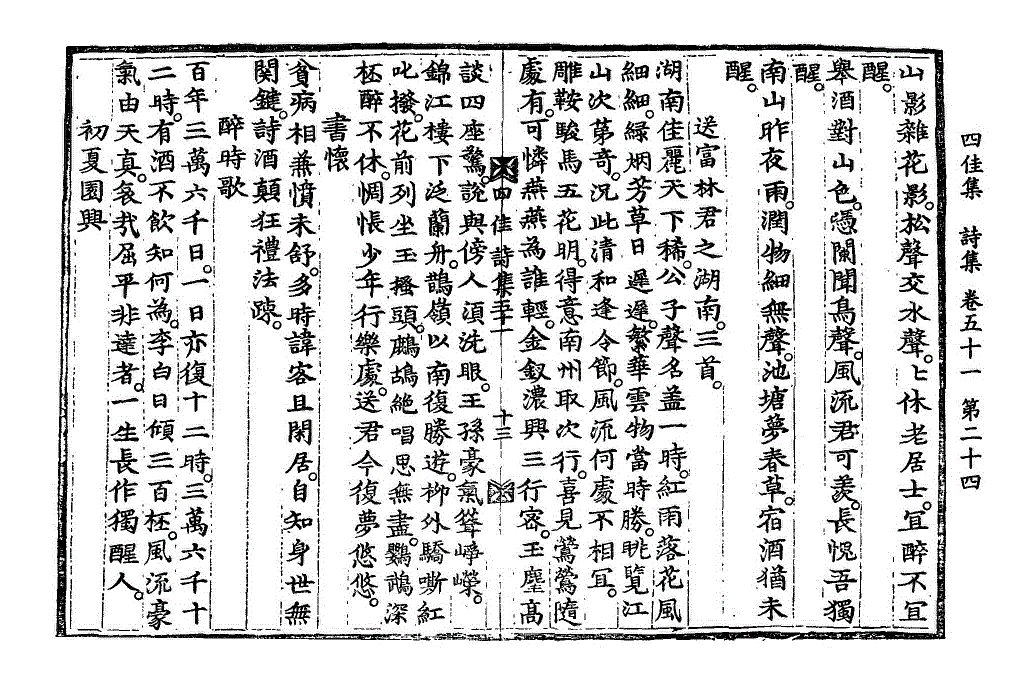 四佳集　詩集　卷五十一　第二十四
山影雜花影。松聲交水聲。匕休老居士。宜醉不宜
醒。
擧酒對山色。憑闌聞鳥聲。風流君可羨。長愧吾獨
醒。
南山昨夜雨。潤物細無聲。池塘夢春草。宿酒猶未
醒。
送富林君之湖南。三首。
湖南佳麗天下稀。公子聲名盖一時。紅雨落花風
細細。綠烟芳草日遲遲。繁華雲物當時勝。眺覽江
山次第奇。況此淸和逢令節。風流何處不相宜。
雕鞍駿馬五花明。得意南州取次行。喜見鶯鶯隨
處有。可憐燕燕為誰輕。金釵濃興三行密。玉麈高
四佳詩集五十一　十三
談四座驚。說與傍人須洗眼。王孫豪氣聳崢嶸。
錦江樓下泛蘭舟。鵲嶺以南復勝遊。柳外驕嘶紅
叱撥。花前列坐玉搔頭。鷓鴣絶唱思無盡。鸚鵡深
柸醉不休。惆悵少年行樂處。送君今復夢悠悠。
書懷
貧病相兼憤未舒。多時諱客且閑居。自知身世無
関鍵。詩酒顛狂禮法踈。
醉時歌
百年三萬六千日。一日亦復十二時。三萬六千十
二時。有酒不飮知何為。李白日傾三百柸。風流豪
氣由天真。哀哉屈平非達者。一生長作獨醒人。
初夏園興